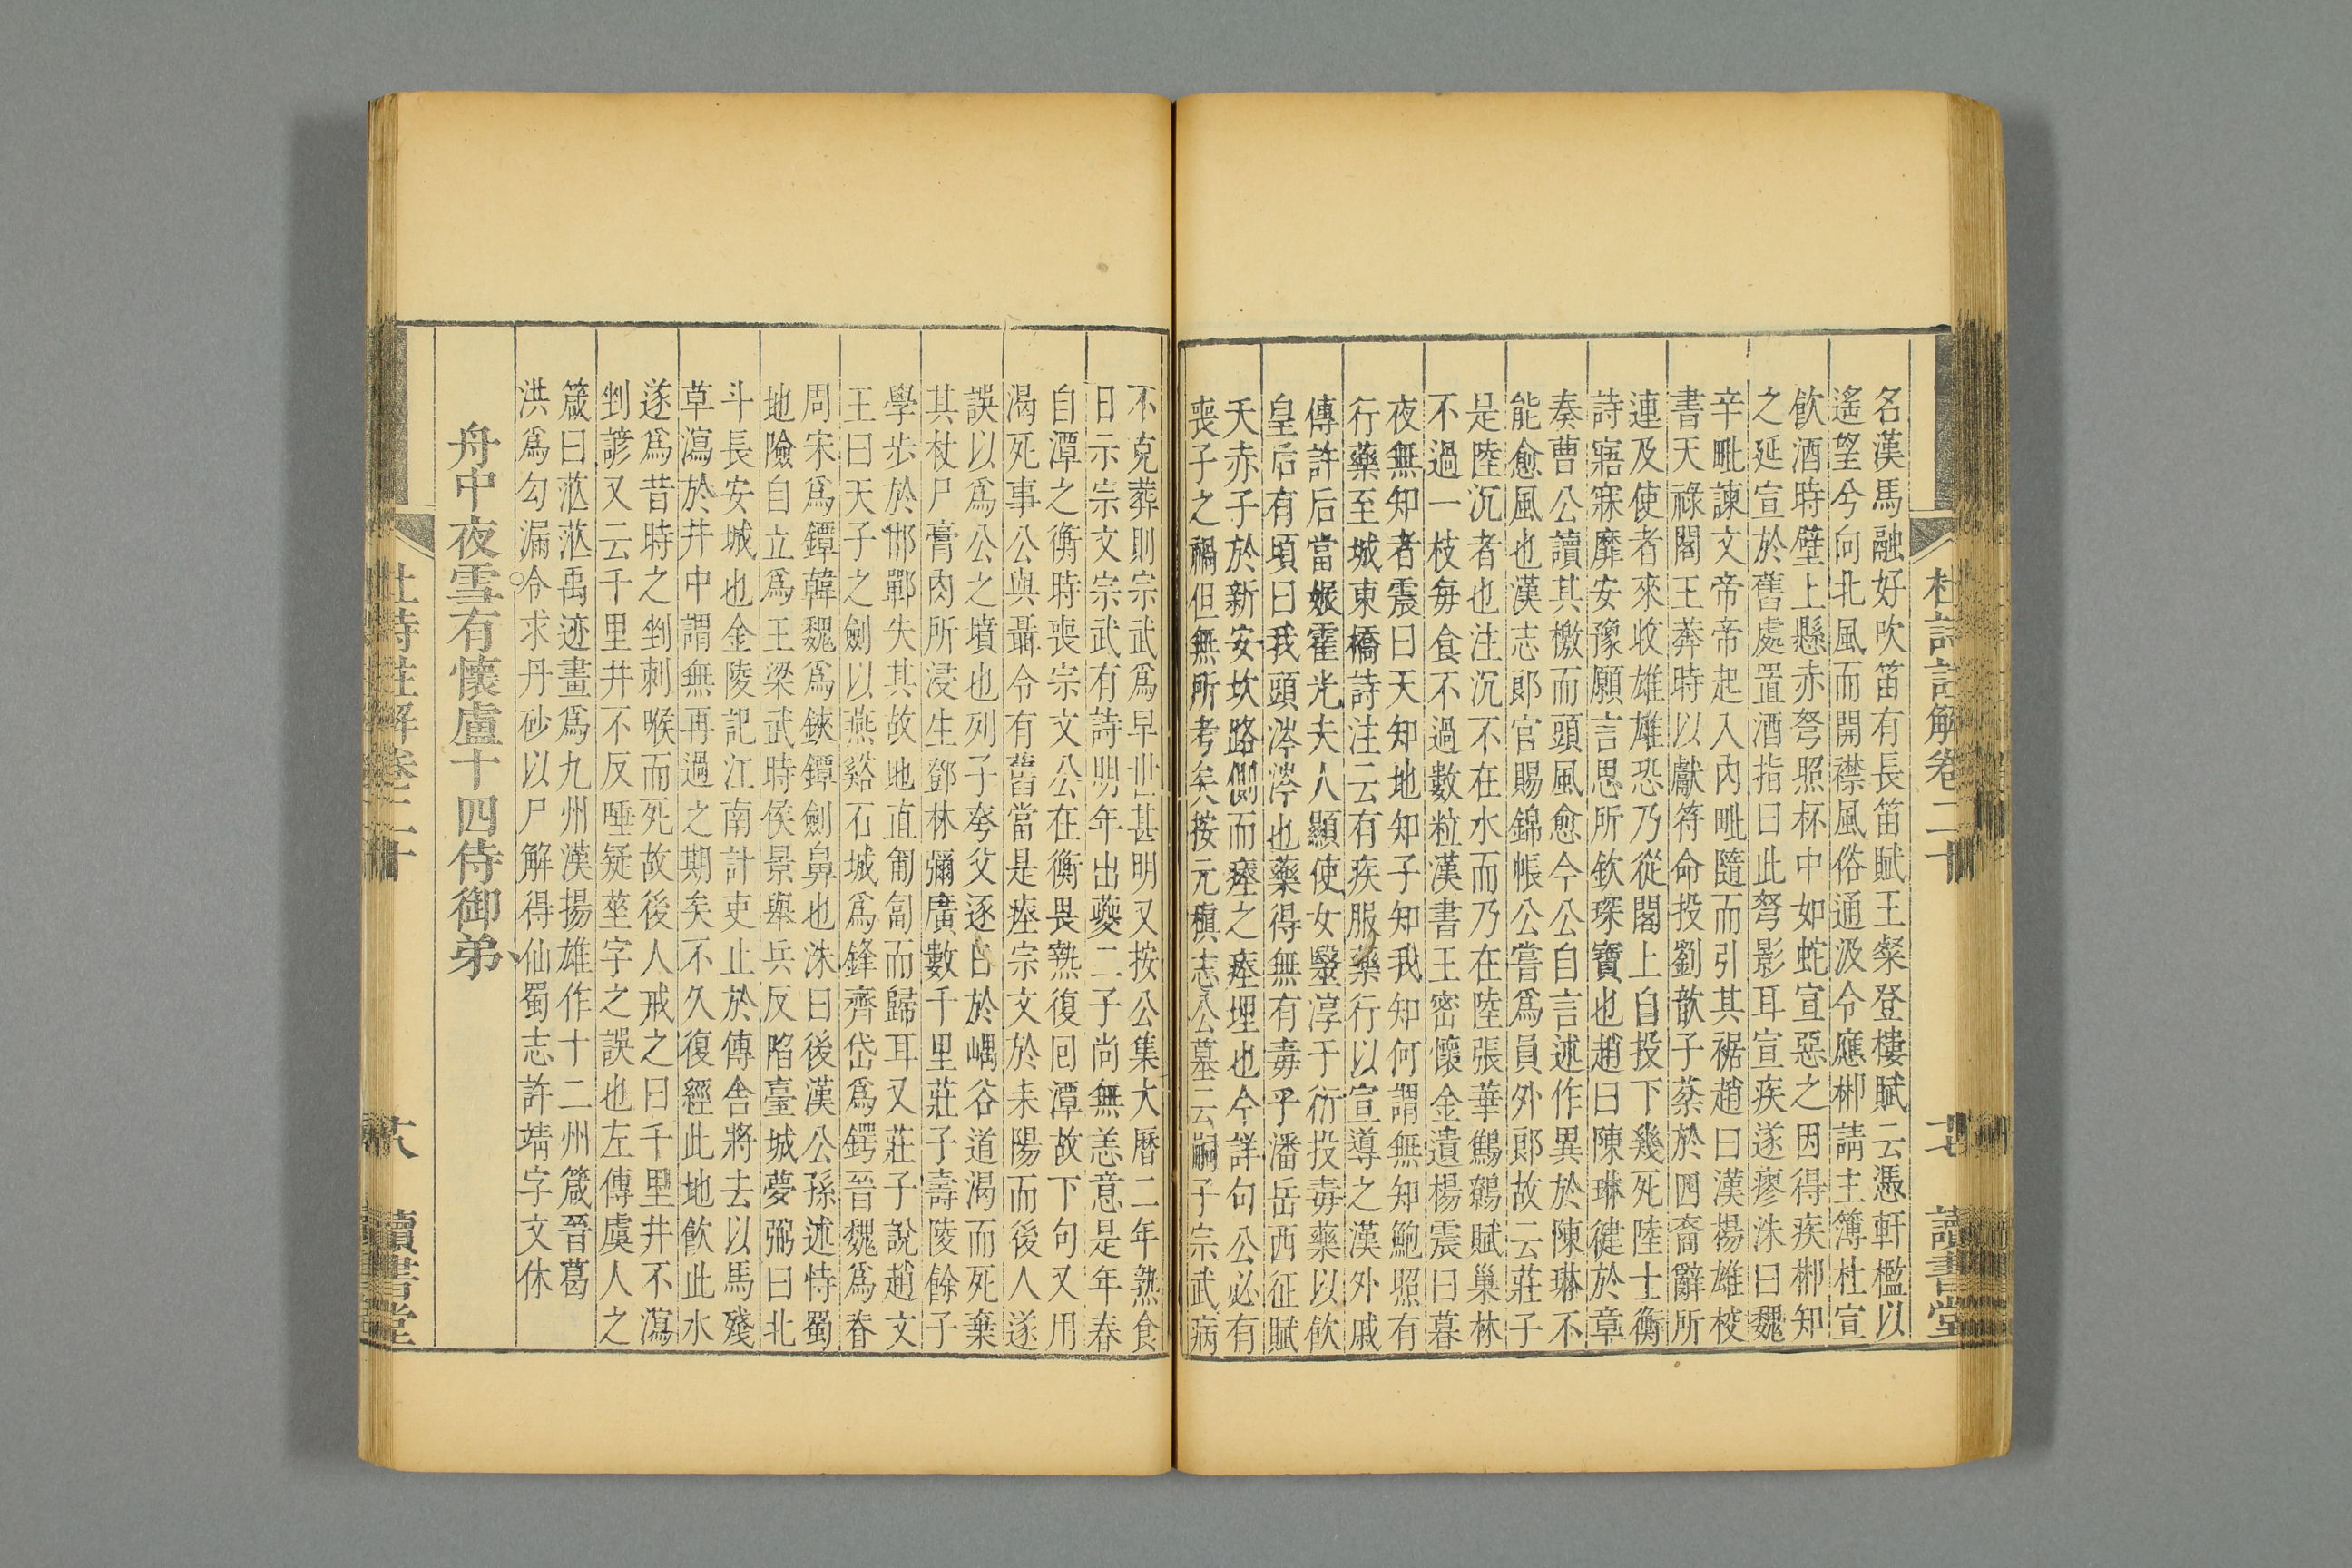 杜詩註解卷二十
十七
讀書堂
名漢馬融好吹笛有長笛賦王粲登樓賦云憑軒檻以
遙望兮向北風而開襟風俗通汲令應郴請主簿杜宣
飲酒時壁上懸赤弩照杯中如蛇宣惡之因得疾郴知
之延宣於舊處置酒指曰此弩影耳宣疾遂瘳洙曰魏
辛毗諫文帝帝起入內毗隨而引其裾趙曰漢揚雄校
書天祿閣王莽時以獻符命投劉歆子棻於四裔辭所
連及使者來收雄雄恐乃從閣上自投下幾死陸士衡
詩寤寐靡安豫願言思所欽琛寶也趙曰陳琳健於章
奏曹公讀其檄而頭風愈今公自言述作異於陳琳不
能愈風也漢志郎官賜錦帳公嘗爲員外郎故云莊子
是陸沉者也注沉不在水而乃在陸張華鷦鷯賦巢林
不過一枝每食不過數粒漢書王密懷金遺楊震曰暮
夜無知者震曰天知地知子知我知何謂無知鮑照有
行藥至城東橋詩注云有疾服藥行以宣導之漢外戚
傳許后當娠霍光夫人顯使女醫淳于衍投毒藥以飲
皇后有頃曰我頭涔涔也藥得無有毒乎潘岳西征賦
夭赤子於新安坎路側而瘞之瘞埋也今詳句公必有
喪子之禍但無所考矣按元稹志公墓云嗣子宗武病
不克葬則宗武爲早世甚明又按公集大曆二年熟食
日示宗文宗武有詩明年出夔二子尚無恙意是年春
自潭之衡時喪宗文公在衡畏熱復囘潭故下句又用
渴死事公與聶令有舊當是瘞宗文於耒陽而後人遂
誤以爲公之墳也列子夸父逐日於嵎谷道渴而死棄
其杖尸膏肉所浸生鄧林彌廣數千里莊子壽陵餘子
學步於邯鄲失其故地直匍匐而歸耳又莊子說趙文
王曰天子之劍以燕谿石城爲鋒齊岱爲鍔晉魏爲脊
周宋爲鐔韓魏爲鋏鐔劍鼻也洙曰後漢公孫述恃蜀
地險自立爲王梁武時侯景舉兵反陷臺城夢弼曰北
斗長安城也金陵記江南計吏止於傳舍將去以馬殘
草瀉於井中謂無再過之期矣不久復經此地飲此水
遂爲昔時之剉刺喉而死故後人戒之曰千里井不瀉
剉諺又云千里井不反唾疑莝字之誤也左傳虞人之
箴曰茫茫禹迹畫爲九州漢揚雄作十二州箴晉葛
洪爲勾漏令求丹砂以尸解得仙蜀志許靖字文休
舟中夜雪有懷盧十四侍御弟
杜詩註解卷二十
十八
讀書堂